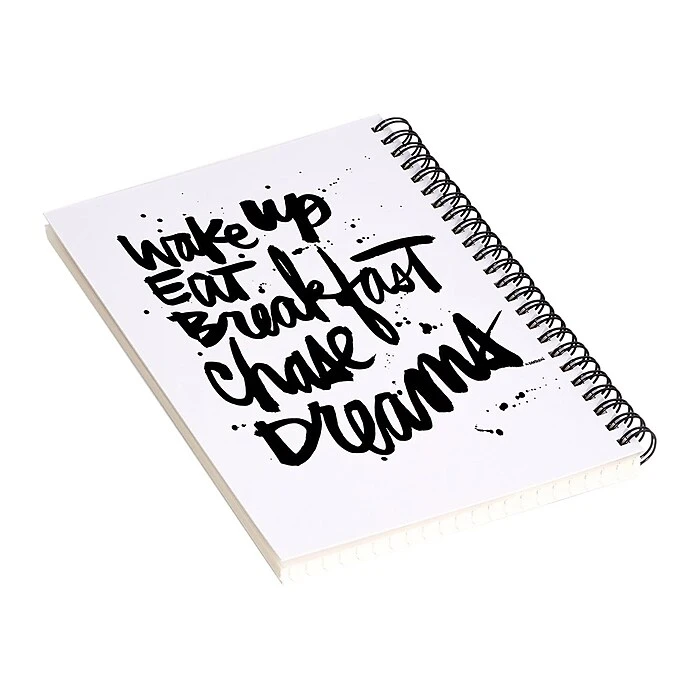 wake up
Eat
Breakfast
Chase
Dreams